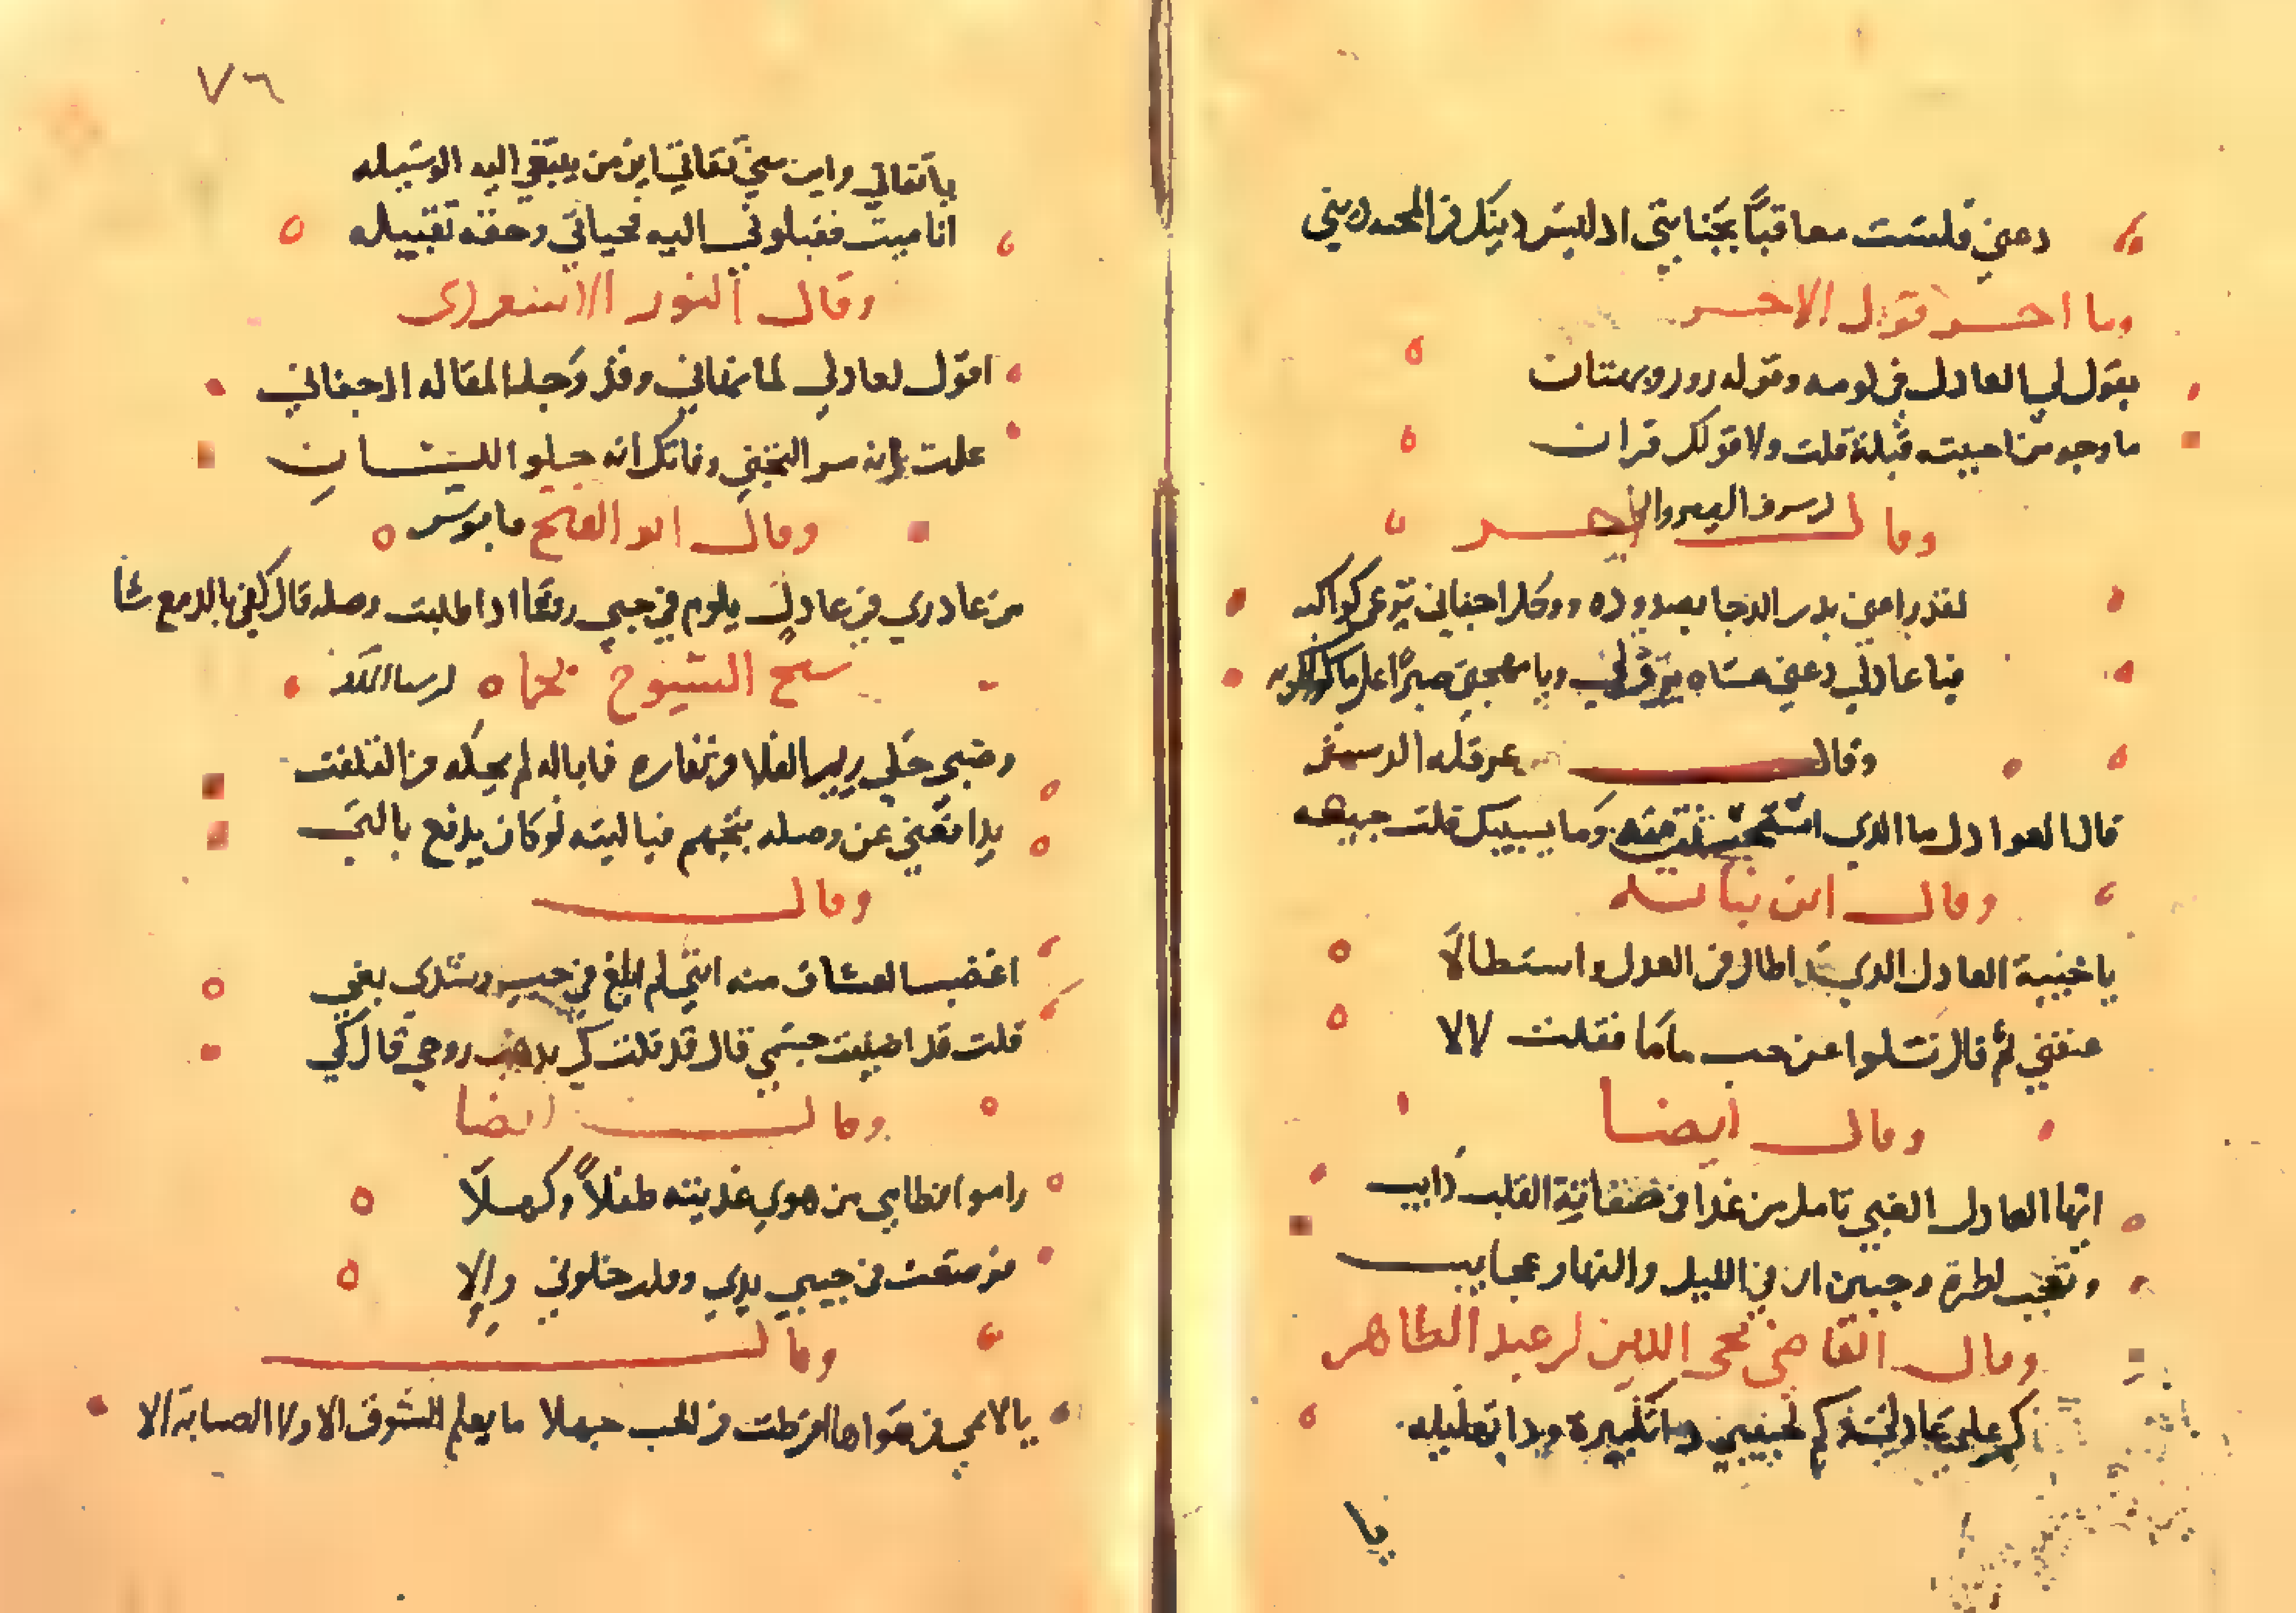 دعني فلست معاقباً بجنايتي اذ ليس دينك في المحبه ديني
وما احسن قول الاخر
يقول لي العاذل في لومه وقوله زور وبهتان
ما وجه من احببت قبلة قلت ولا قولك قران
وقال
لقد راعني بدر الدجا بصدوده ووكل اجفاني برعي كواكبه
فيا عاذلي دعني عساه يرق لي ويا مهجتي صبراً على ما
وقال عرقله الدمشقي
قال العواذل ما الذي استحسنت منه وما يسبيك قلت جميعه
وقال ابن نباته
يا خيبة العاذل الذي قد اطال في العذل واستطالا
عنفني ثم قال تسلوا عن حب ماما فقلت لالا
وقال ايضا
ايها العاذل الغبي تامل من غدا في صفاته القلب ذايب
وتعجب لطرة وجبين ان في الليل والنهار عجايب
وقال القاضي محي الدين بن عبد الظاهر
كم على عاذلي
يا
٧٦
يا ثقاتي واين مني ثقاتي اين من يبتغي اليه الوسيله
انا ميت فقبلوني اليه فحياتي وحقه تقبيله
وقال النور الاسعردي
اقول لعاذلي لما نهاني وقد وجد المقاله اذ جفاني
علمت بانه مر التجني وفاتك انه حلو اللسان
وقال ابو الفتح
من عاذري في عاذل يلوم في حبي رشا اذا طلبت وصله قال كفى بالدمع شا
شيخ الشيوخ بحماه
وظبي حكى ريم الفلا في نفاره فما باله لم يحكه في التلفت
يدافعني عن وصله بتجهم فيا ليته لو كان يدفع بالتي
وقال
اغضب العشاق منه انني لم ابلغ في حبي رشدي بغي
قلت قد اضنيت جسمي قال قد قلت كي يذهب روحي قال كي
وقال ايضا
راموا فطامي من هوى غذيته طفلاً وكهلاً
فوضعت في جيبي يدي وقلت خلوني والا
وقال
يا لايمي في هواها افرطت في الحب جهلا ما يعلم الشوق الا ولا الصبابة الا